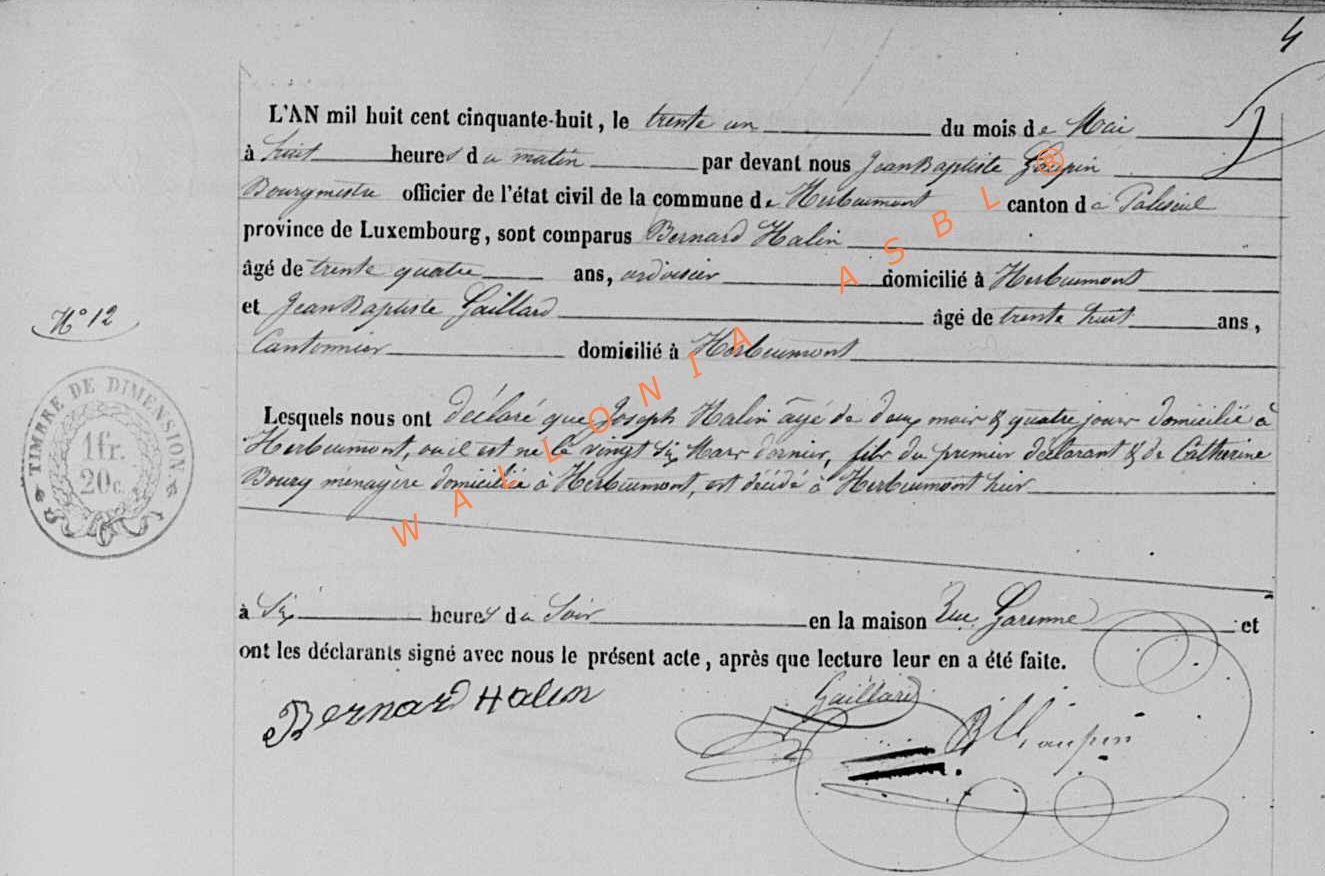 4
L'AN mil huit cent cinquante-huit, le trente un du mois de Mai
à huit heures du matin par devant nous Jean Baptiste
Bourgmestre officier de l'état civil de la commune de Herbeumont canton de Paliseul
province de Luxembourg, sont comparus Bernard Halin
âgé de trente quatre ans, ardoisier domicilié à Herbeumont
et Jean Baptiste Gaillard âgé de trente huit ans,
Cantonnier domicilié à Herbeumont
N° 12
TIMBRE DE DIMENSION
1 fr.
20 c.
Lesquels nous ont déclaré que Joseph Halin âgé de deux mois & quatre jours domicilié à
Herbeumont, où il est né le vingt six Mars dernier, fils du premier déclarant & de Catherine
Bourg ménagère domiciliée à Herbeumont, est décédé à Herbeumont hier
à Six heures du Soir en la maison Rue Garenne et
ont les déclarants signé avec nous le présent acte, après que lecture leur en a été faite.
Bernard Halin
Gaillard
WALLONIA ASBL ®